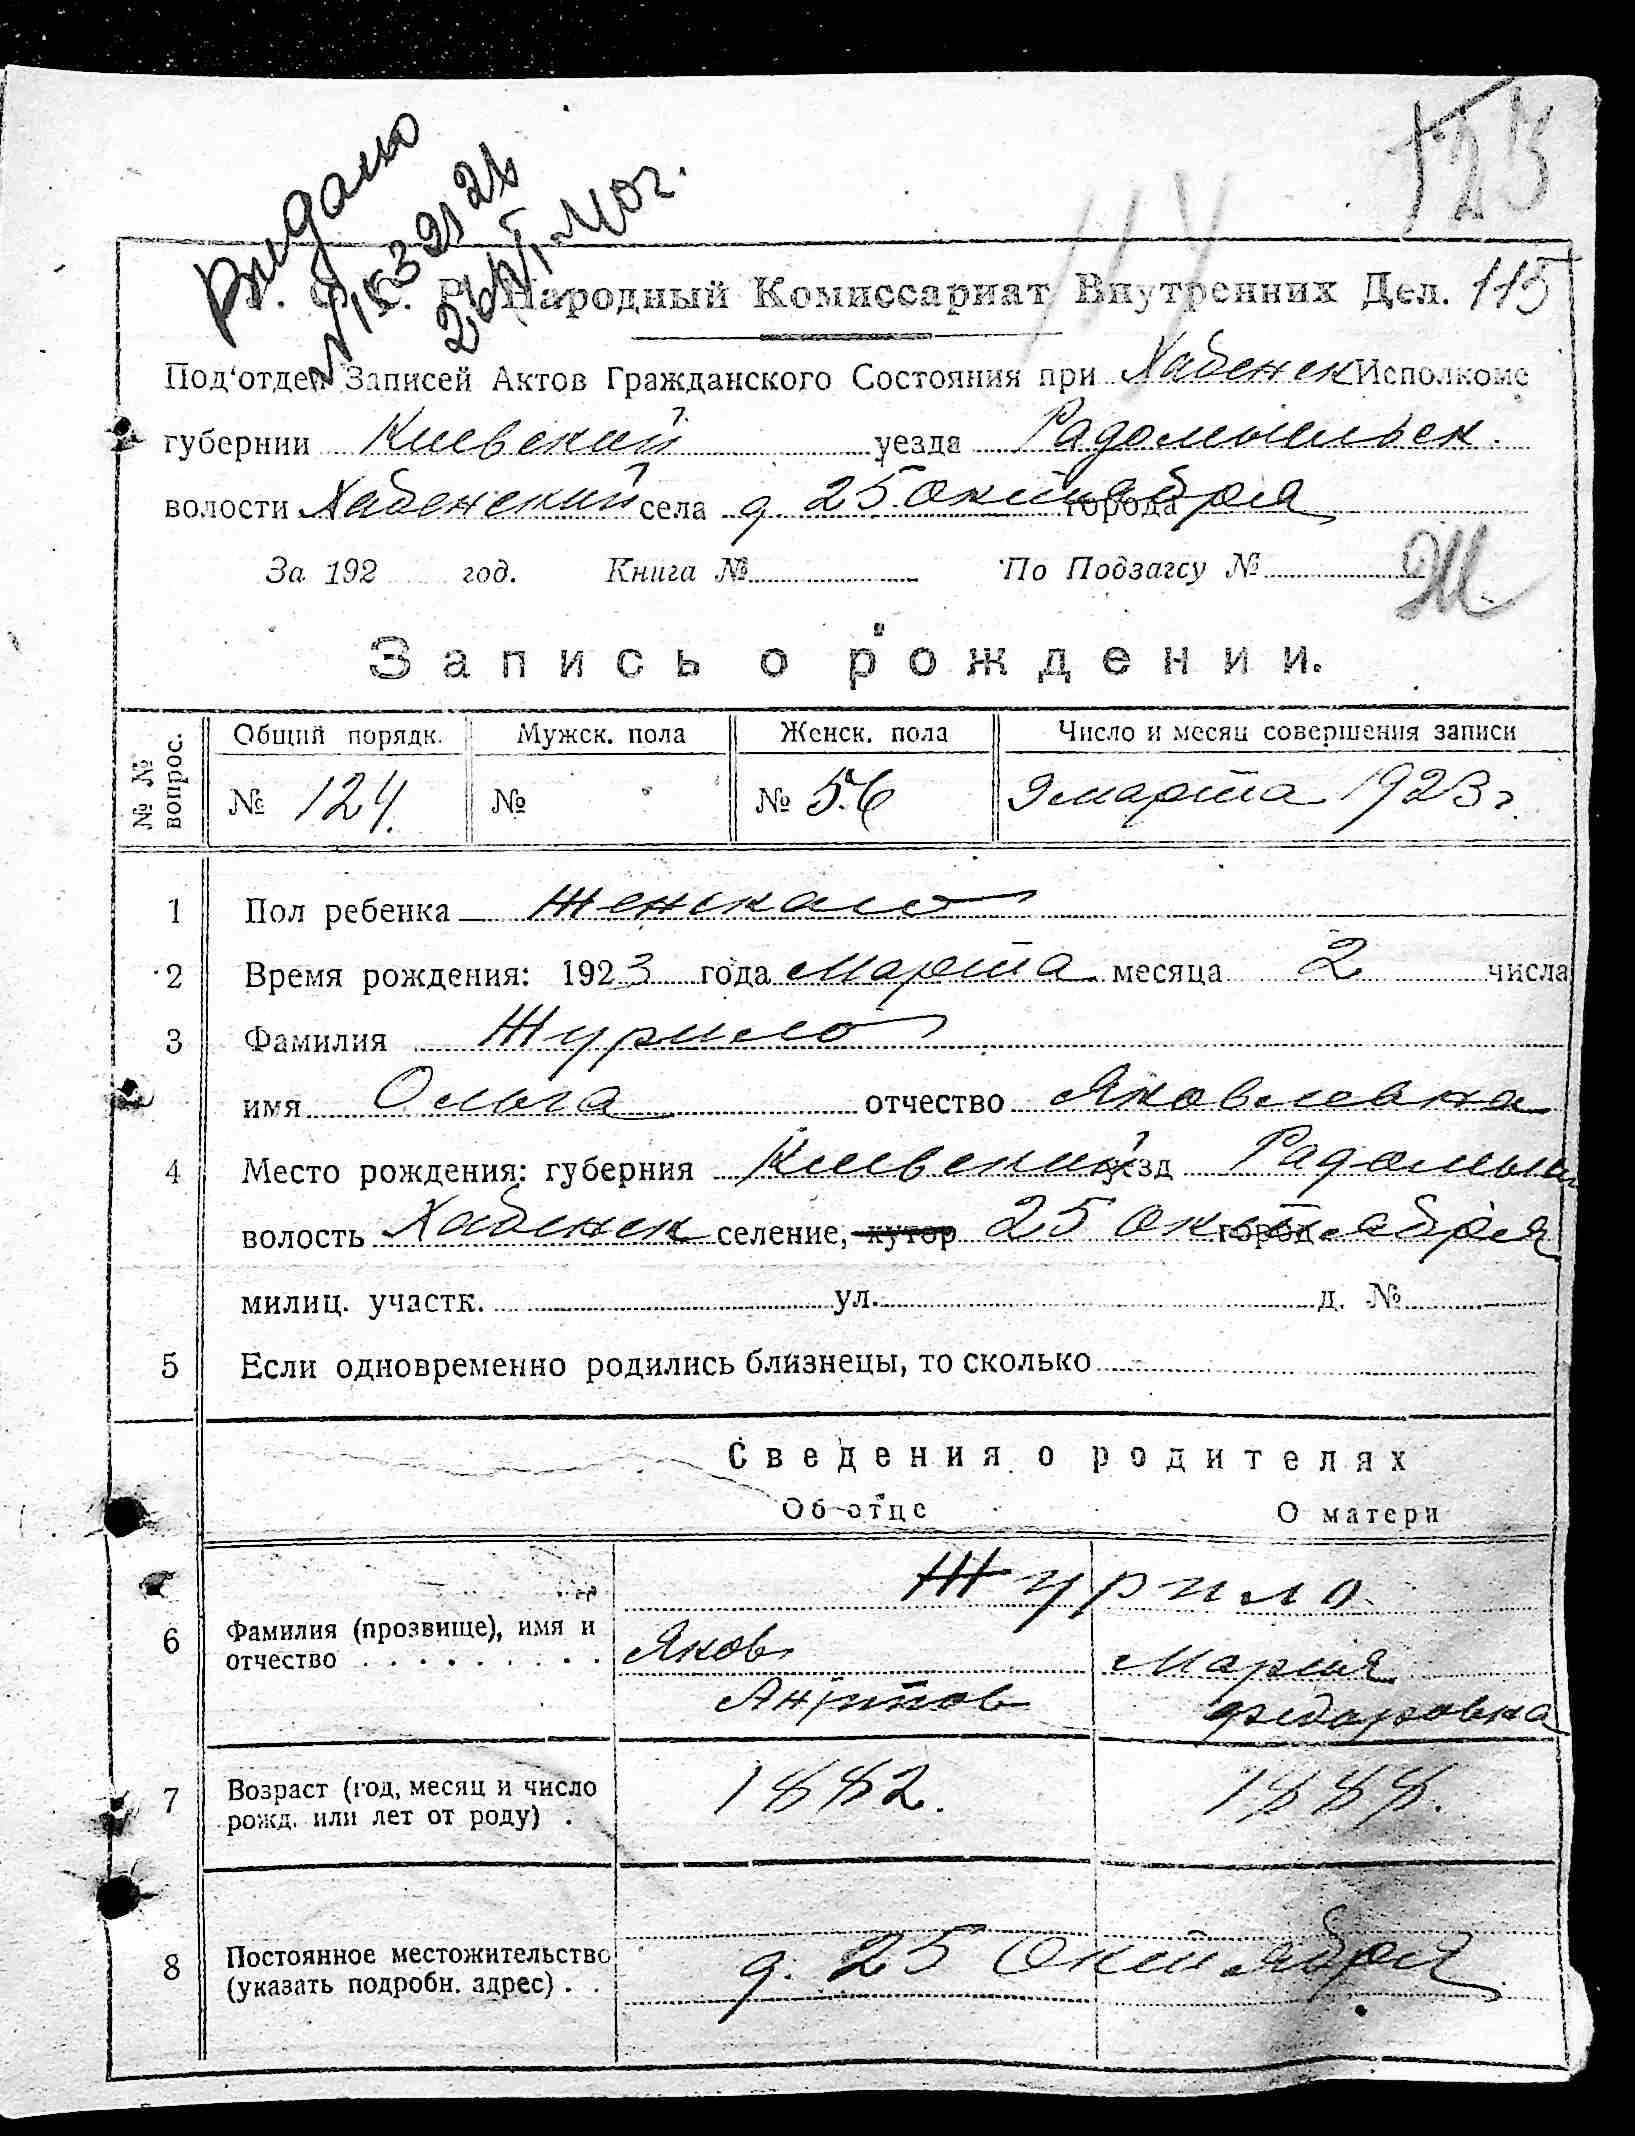 125
114
Выдано
Народный Комиссариат Внутренних Дел. 115
Под'отдел Записей Актов Гражданского Состояния при Хабенск Исполкоме
губернии Киевский уезда Радомысльск.
волости Хабенский села д. 25 Октября города
За 192 год. Книга № По Подзагсу №
Ж
Запись о рождении.
№ № вопрос. Общий порядк. Мужск. пола Женск. пола Число и месяц совершения записи
№ 124. № № 56 9 марта 1923 г.
1 Пол ребенка Женскаго
2 Время рождения: 1923 года Марта месяца 2 числа
3 Фамилия Журило
имя Ольга отчество Яковлевна
4 Место рождения: губерния Киевский уезд Радомыш
волость Хабенск селение, хутор 25 Октября город
милиц. участк. ул. д. №
5 Если одновременно родились близнецы, то сколько
Сведения о родителях
Об отце О матери
Журило
6 Фамилия (прозвище), имя и Яков Мария
отчество Федоровна
7 Возраст (год, месяц и число 1882. 1888.
рожд. или лет от роду) .
8 Постоянное местожительство д. 25 Октября
(указать подробн. адрес) . .